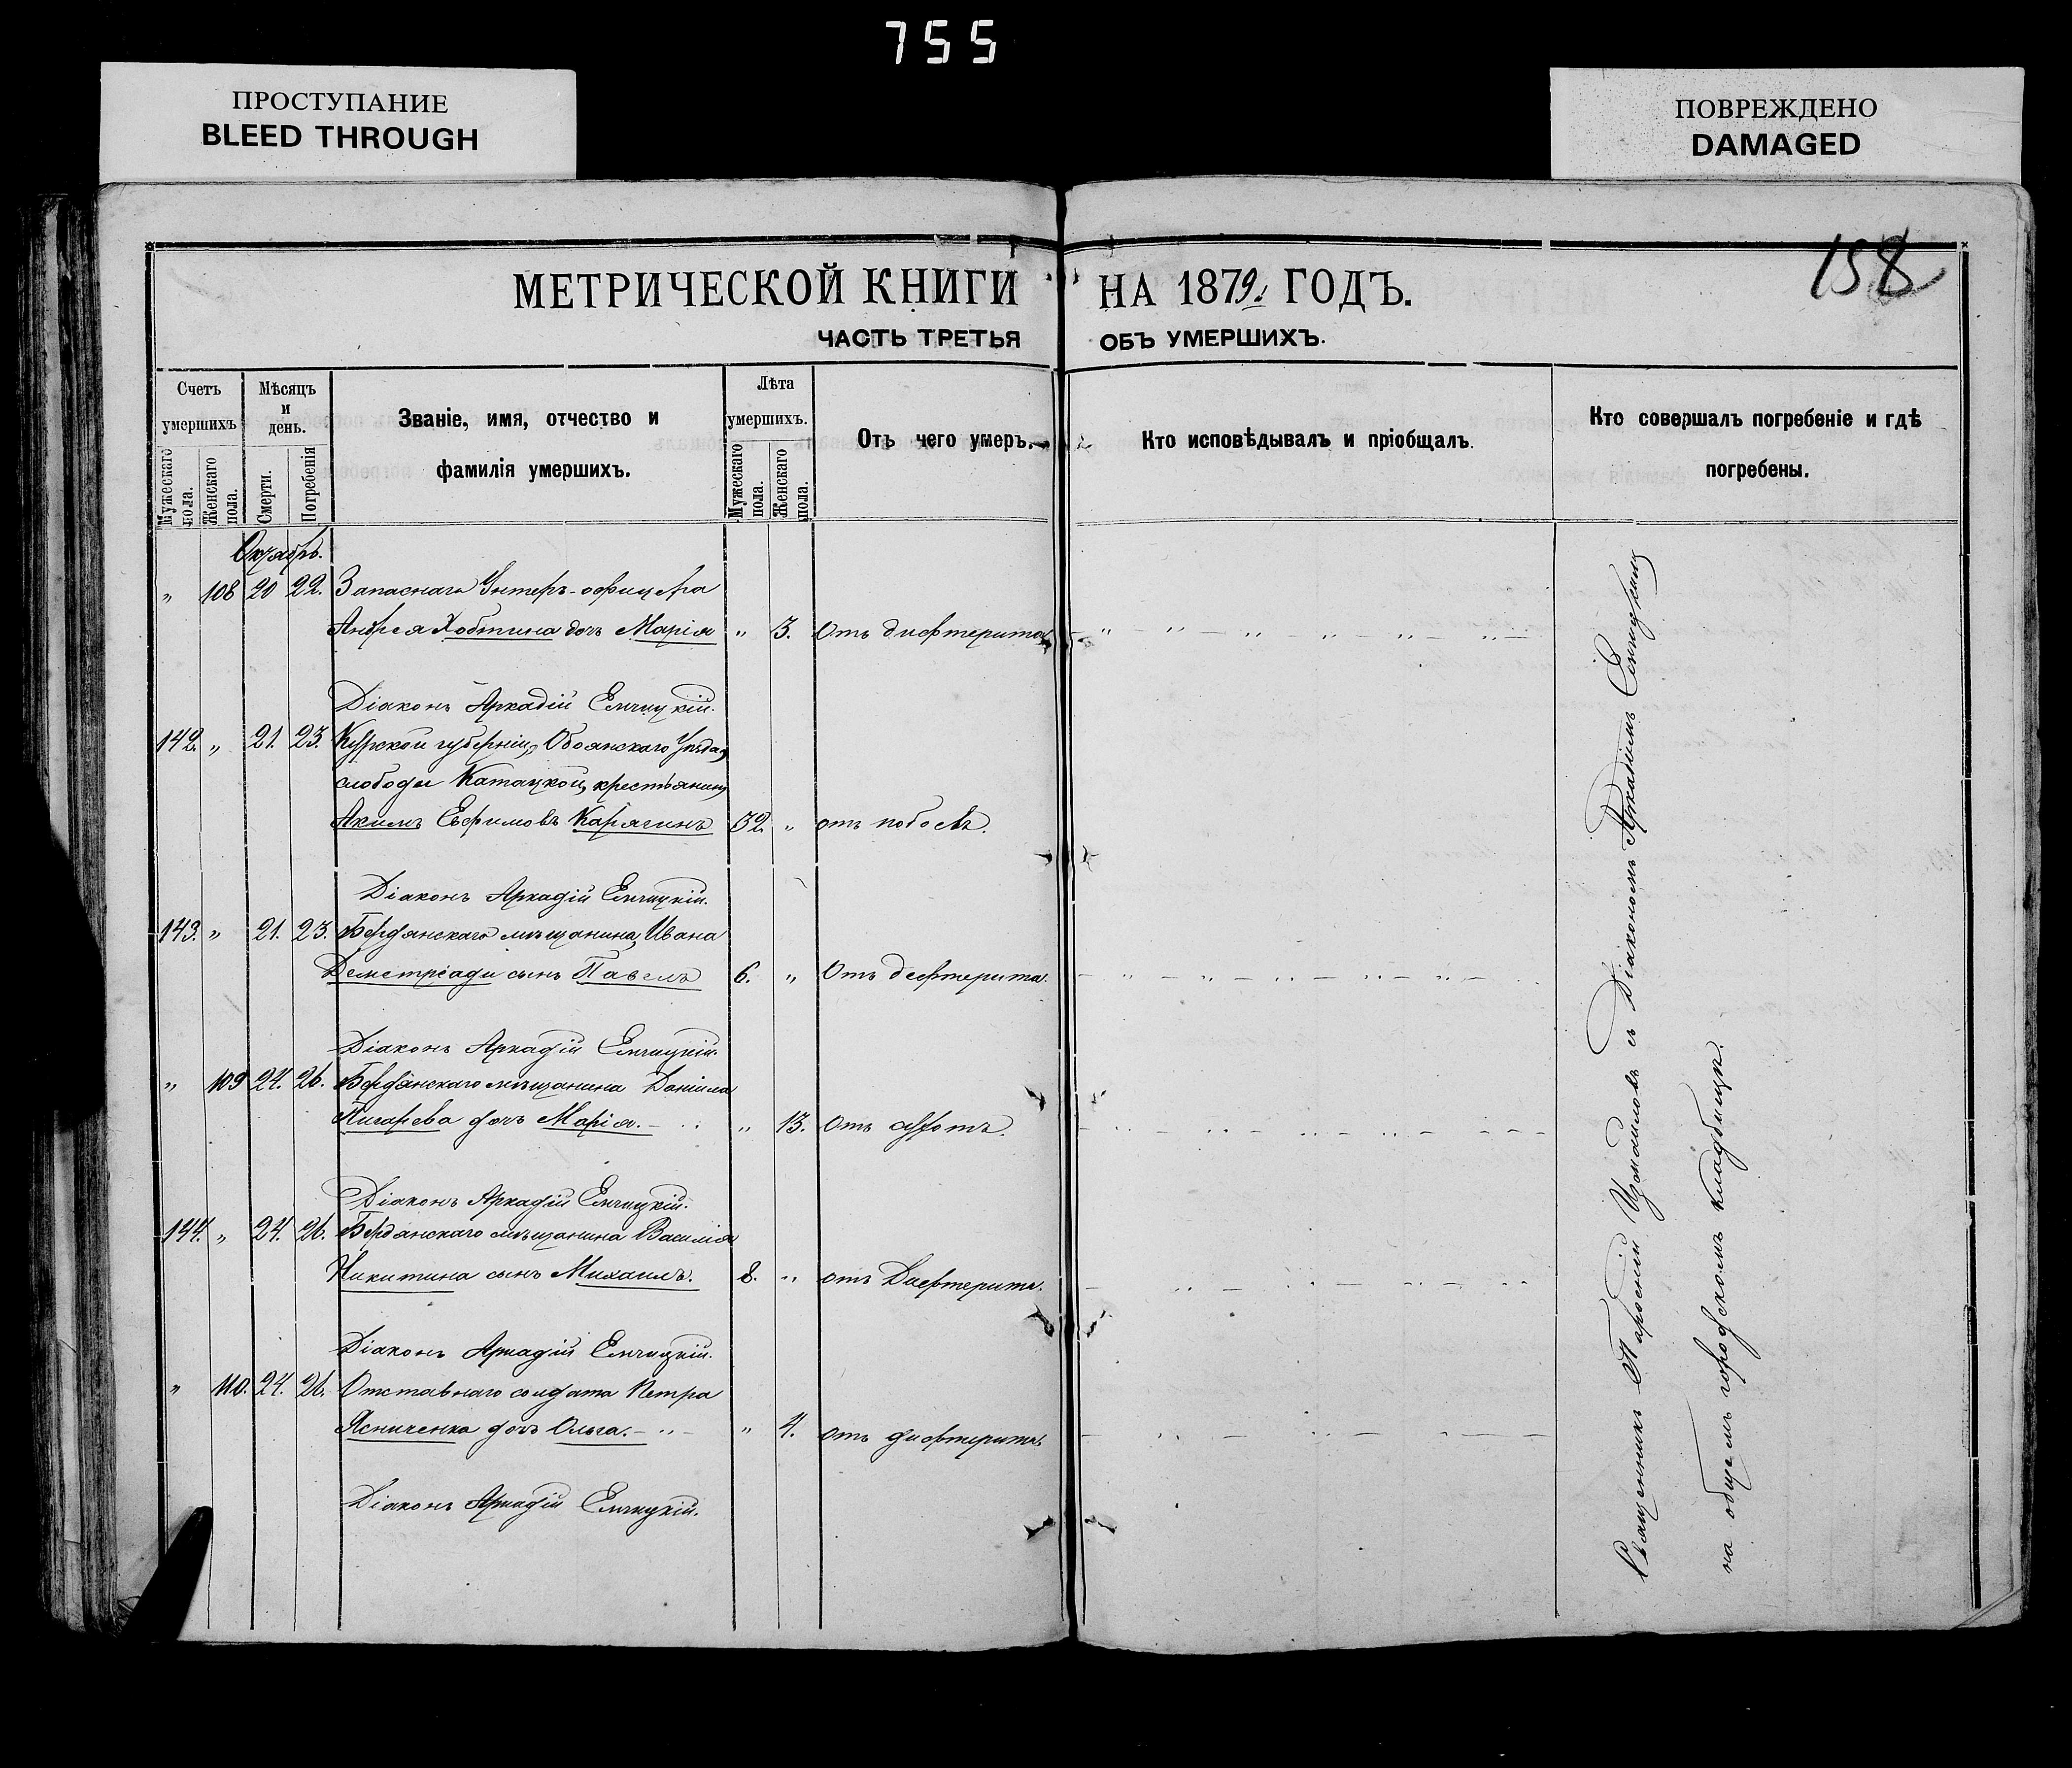 755
ПРОСТУПАНИЕ
BLEED THROUGH
ПОВРЕЖДЕНО
DAMAGED
158
МЕТРИЧЕСКОЙ КНИГИ НА 1879 ГОДЪ.
ЧАСТЬ ТРЕТЬЯ ОБЪ УМЕРШИХЪ.
Счетъ умершихъ
Мужескаго пола.
Женскаго пола.
Мѣсяцъ и день.
Смерти.
Погребенія
Званіе, имя, отчество и
фамилія умершихъ.
Лѣта умершихъ.
Мужескаго пола.
Женскаго пола.
Отъ чего умеръ.
Кто исповѣдывалъ и пріобщалъ.
Кто совершалъ погребеніе и гдѣ
погребены.
Октябрь.
" 108 20 22. Запаснаго Унтеръ-офицера
Андрея Хобтина дочь Марія " 3. Отъ дифтерита
Діаконъ Аркадій Енчицкій.
142. " 21. 23. Курской губерніи, Обоянскаго Уѣзда,
слободы крестьянинъ
Акимъ Ефимовъ Карягинъ 32. " отъ побоевъ.
Діаконъ Аркадій Енчицкій.
143. " 21. 23. Бердянскаго мѣщанина Ивана
Деметріади сынъ Павелъ 6. " Отъ дифтерита.
Діаконъ Аркадій Енчицкій.
" 109 24. 26. Бердянскаго мѣщанина Даніила
Писарева дочь Марія. " 13. Отъ
Діаконъ Аркадій Енчицкій.
144. " 24. 26. Бердянскаго мѣщанина Василія
Никитина сынъ Михаилъ. 8. " отъ Дифтерита.
Діаконъ Аркадій Енчицкій.
" 110. 24. 26. Отставнаго солдата Петра
Ясниченка дочь Ольга. " 4. отъ дифтерита
Діаконъ Аркадій Енчицкій.
Священникъ съ Діакономъ Аркадіемъ Енчицкимъ
на общемъ городскомъ кладбищѣ.